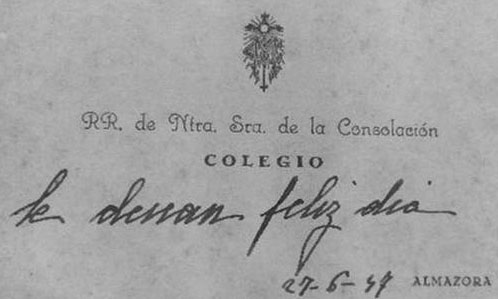 RR. de Ntra. Sra. de la Consolación
COLEGIO
le desean feliz dia
27-6-47 ALMAZORA